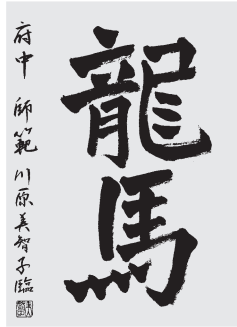 龍馬
府中 師範 川原美智子臨